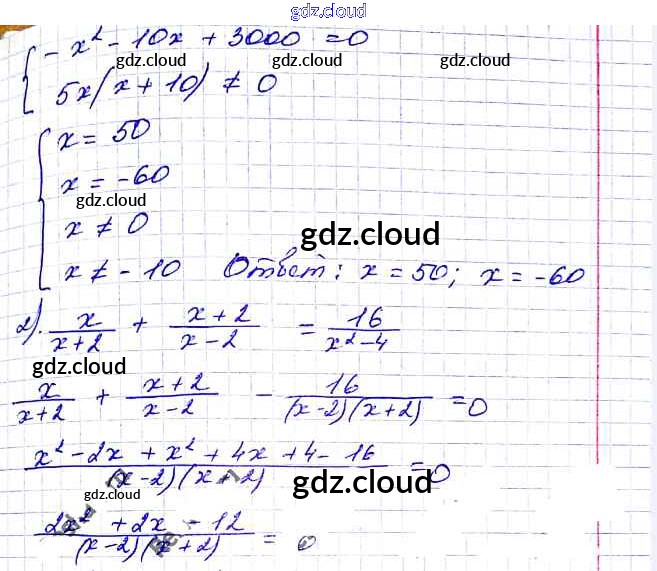 gdz.cloud
- x² - 10x + 3000 = 0
gdz.cloud gdz.cloud gdz.cloud
5x(x + 10) ≠ 0
x = 50
x = -60
gdz.cloud
x ≠ 0
gdz.cloud
x ≠ - 10 Ответ: x = 50; x = -60
2). x/(x+2) + (x+2)/(x-2) = 16/(x²-4)
gdz.cloud
x/(x+2) + (x+2)/(x-2) - 16/((x-2)(x+2)) = 0
(x² - 2x + x² + 4x + 4 - 16)/((x-2)(x+2)) = 0
gdz.cloud gdz.cloud
(2x² + 2x - 12)/((x-2)(x+2)) = 0